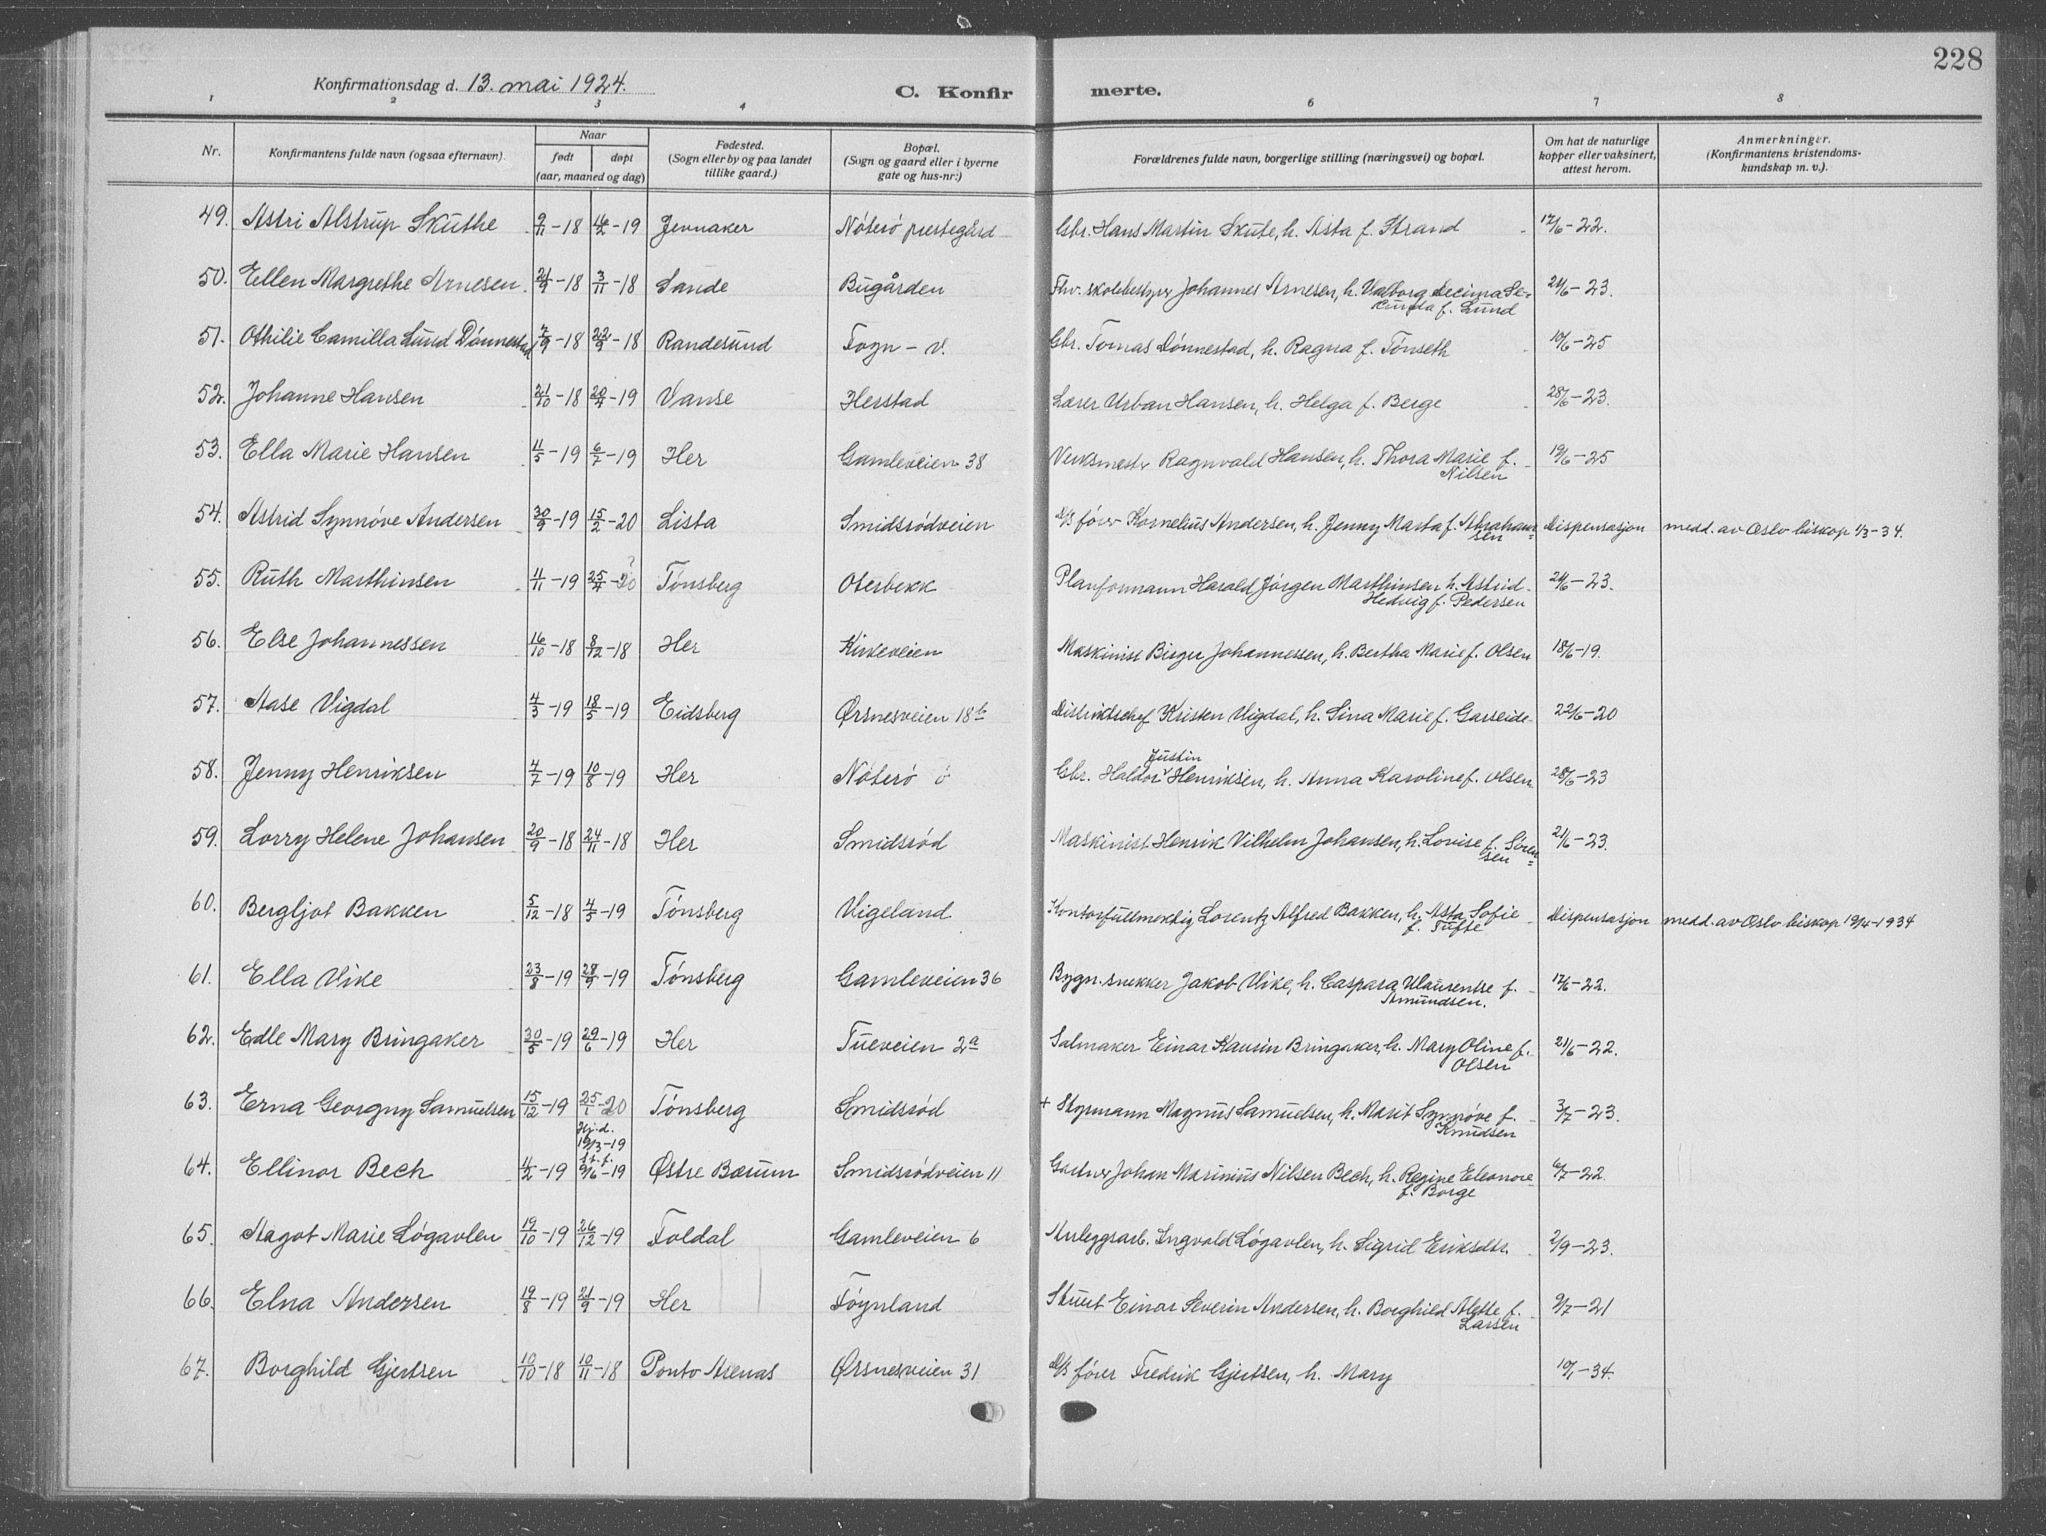 228
Konfirmationsdag d. 13. mai 1924.
C. Konfir merte.
1 2 3 4 6 7 8
Nr. Konfirmantens fulde navn (ogsaa efternavn). Naar født døpt (aar, maaned og dag) Fødested. (Sogn eller by og paa landet tillike gaard.) Bopæl. (Sogn og gaard eller i byerne gate og hus-nr:) Forældrenes fulde navn, borgerlige stilling (næringsvei) og bopæl. Om hat de naturlige kopper eller vaksinert, attest herom. Anmerkninger. (Konfirmantens kristendoms-kundskap m. v.).
49. Astri Alstrup Skuthe 9/11-18 -19 Jevnaker Nøterø prestegård Gbr. Hans Martin Skute, h. Asta f. Strand 17/6-22.
50. Ellen Margrethe Arnesen 21/9-18 3/11-18 Sande Bugården Fhv. skolebestyrer Johannes Arnesen, h. Valborg Decima Se-
kunda f. Lund 21/6-23.
51. Othilie Camilla Lund Dønnestad 7/9-18 22/9-18 Randesund Fogn - v. Gbr. Tomas Dønnestad, h. Ragna f. Tønseth 10/6-25
52. Johanne Hansen 21/10-18 20/4-19 Vanse Herstad Lærer Urban Hansen, h. Helga f. Berge 28/6-23.
53. Ella Marie Hansen 11/5-19 6/7-19 Her Gamleveien 38 Verksmestr Ragnvald Hansen, h. Thora Marie f.
Nilsen 19/6-25
54. Astrid Synnøve Andersen 30/9-19 15/2-20 Lista Smidsrødveien D/S fører Kornelius Andersen, h. Jenny Marta f. Abraham=
sen Dispensasjon medd. av Oslo biskop 1/3-34.
55. Ruth Marthinsen 11/11-19 25/4-20 ? Tønsberg Oterbekk Planformann Harald Jørgen Marthinsen h. Astrid
Hedvig f. Pedersen 21/6-23.
56. Else Johannessen 16/10-18 8/12-18 Her Kirkeveien Maskinist Birger Johannessen, h. Bertha Marie f. Olsen 18/6-19.
57. Aase Vigdal 4/3-19 18/5-19 Eidsberg Ørsnesveien 18b Distriktschef Kristen Vigdal, h. Sina Marie f. Garseide 22/6-20
58. Jenny Henriksen 4/7-19 10/8-19 Her Nøterø ø
Justin
Gbr. Haldor Henriksen, h. Anna Karoline f. Olsen 28/6-23
59. Lorry Helene Johansen 20/9-18 24/11-18 Her Smidsrød Maskinist Henrik Vilhelm Johansen, h. Lovise f. Sören=
sen 21/6-23.
60. Bergljot Bakken 5/12-18 4/5-19 Tønsberg Vigeland Kontorfullmektig Lorentz Alfred Bakken, h. Asta Sofie
f. Tufte Dispensasjon medd. av Oslo biskop 19/4-1934
61. Ella Vike 23/8-19 28/9-19 Tønsberg Gamleveien 36 Bygn. snekker Jakob Vike, h. Caspara Ulaurentse f.
Amundsen. 17/6-22.
62. Edle Mary Bringaker 30/5-19 29/6-19 Her Tueveien 2a Salmaker Einar Kaurin Bringaker, h. Mary Oline f.
Olsen 21/6-22.
63. Erna Georgny Samuelsen 15/12-19 25/1-20 Tønsberg Smidsrød + Styrmann Magnus Samuelsen, h. Marit Synnøve f.
Knudsen 3/7-23.
64. Ellinor Bech 4/2-19 Hj.d. 19/3-19 st.f. 9/6-19 Østre Bærum Smidsrødveien 11 Gartner Johan Marinius Nilsen Bech, h. Regine Eleonore
f. Borge 6/7-22.
65. Aagot Marie Løgavlen 19/10-19 26/12-19 Foldal Gamleveien 6 Anleggsarb. Ingvald Løgavlen, h. Sigrid Eriksdtr. 2/9-23.
66. Elna Andersen 19/8-19 21/9-19 Her Føynland Skuut Einar Severin Andersen, h. Borghild Alette f.
Larsen 9/7-21
67. Borghild Gjertsen 10/10-18 10/11-18 Ponto Arenas Ørsnesveien 31 D/S fører Fredrik Gjertsen, h. Mary 10/1-34.